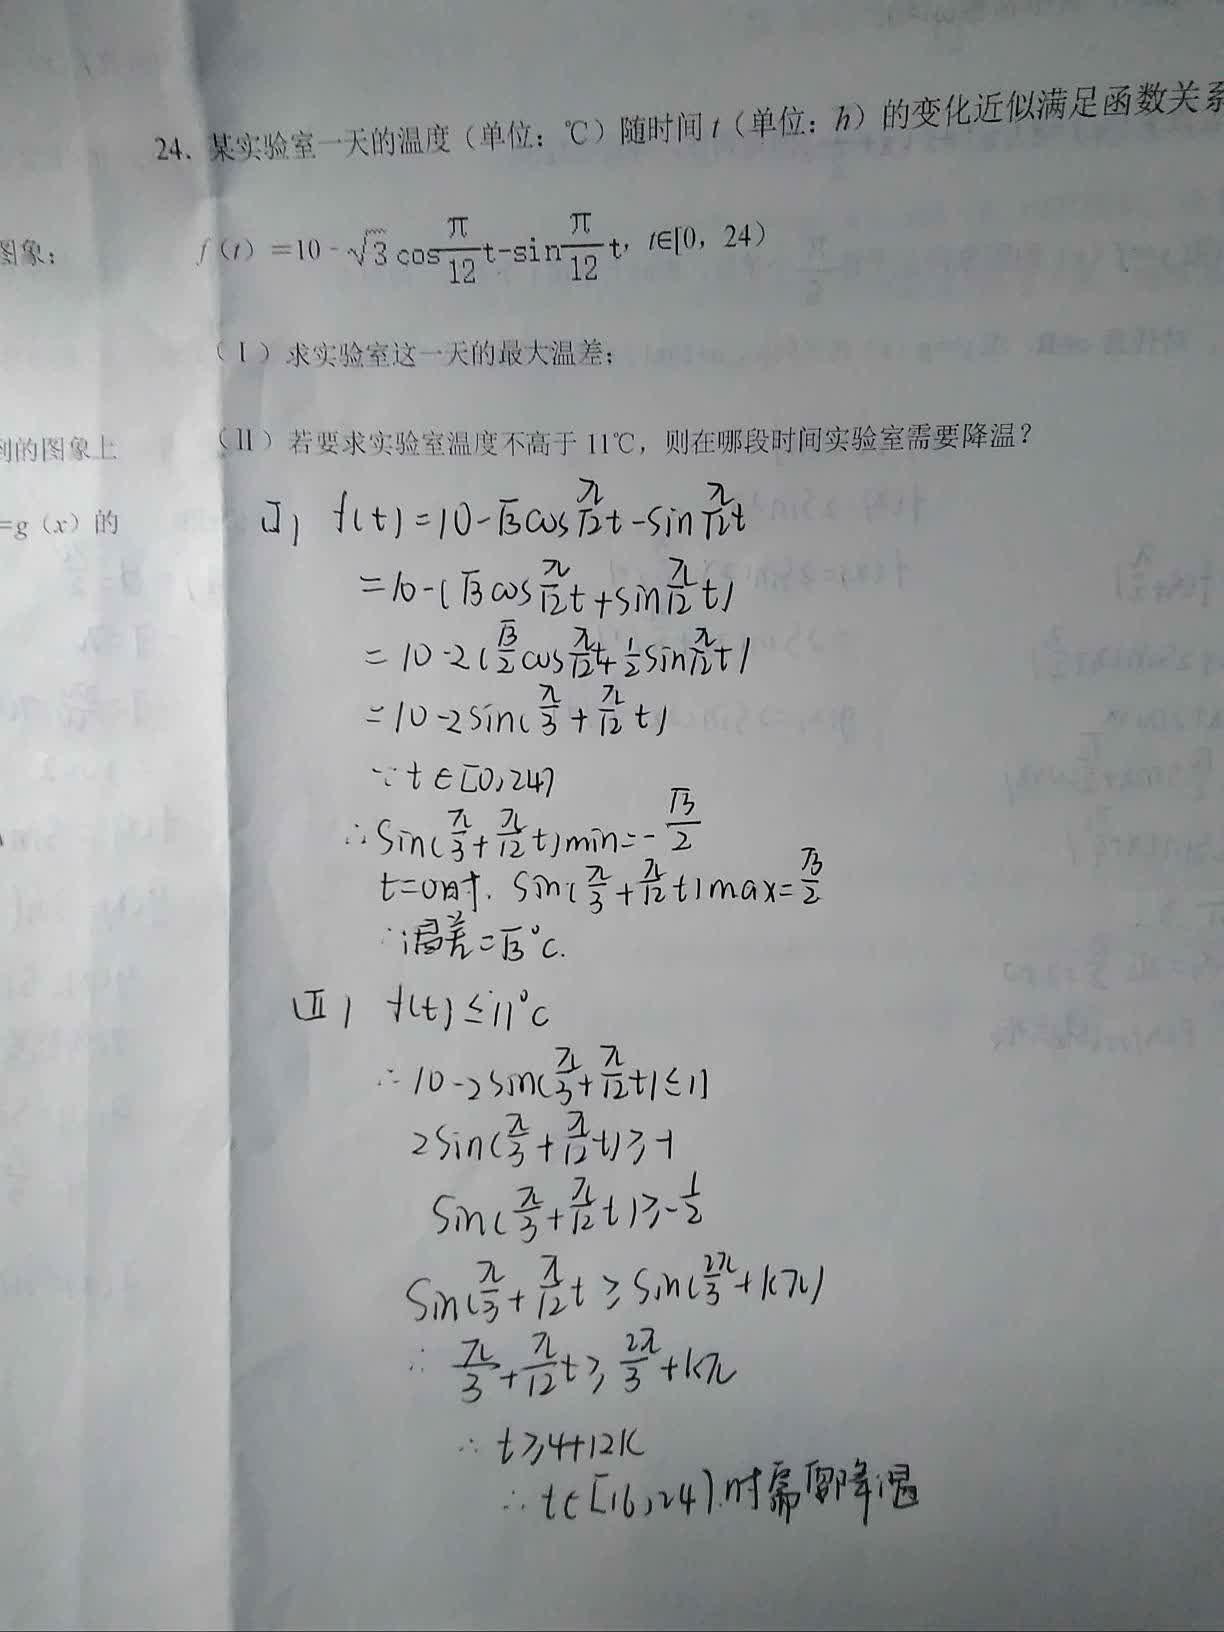 24. 某实验室一天的温度（单位：℃）随时间 t（单位：h）的变化近似满足函数关系
图象：
f（t）=10-√3cosπ/12t-sinπ/12t，t∈[0，24）
（Ⅰ）求实验室这一天的最大温差；
到的图象上
（Ⅱ）若要求实验室温度不高于 11℃，则在哪段时间实验室需要降温？
=g（x）的
(Ⅰ) f(t)=10-√3cosπ/12t-sinπ/12t
=10-(√3cosπ/12t+sinπ/12t)
=10-2(√3/2cosπ/12t+1/2sinπ/12t)
=10-2sin(π/3+π/12t)
∵t∈[0,24)
∴sin(π/3+π/12t)min=-√3/2
t=0时. sin(π/3+π/12t)max=√3/2
∴温差=√3℃.
(Ⅱ) f(t)≤11℃
∴10-2sin(π/3+π/12t)≤11
2sin(π/3+π/12t)≥-1
sin(π/3+π/12t)≥-1/2
sin(π/3+π/12t≥sin(2π/3+kπ)
∴π/3+π/12t≥2π/3+kπ
∴t≥4+12k
∴t∈[16,24).时需要降温